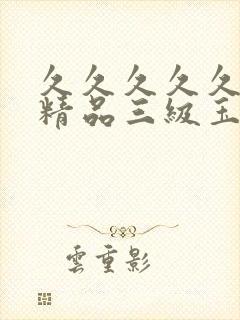 久久久久久
精品三級玉
雲重影